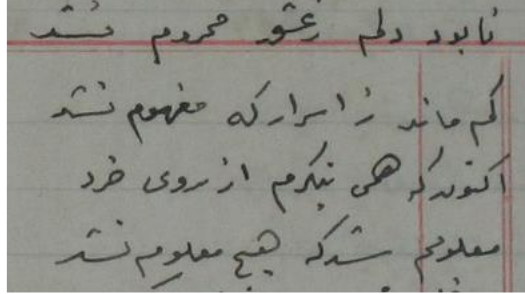 تا بود دلم زعشق محروم نشد
کم ماند ز اسرار که مفهوم نشد
اکنون که همی بنگرم از روی خرد
معلومم شد که هیچ معلوم نشد